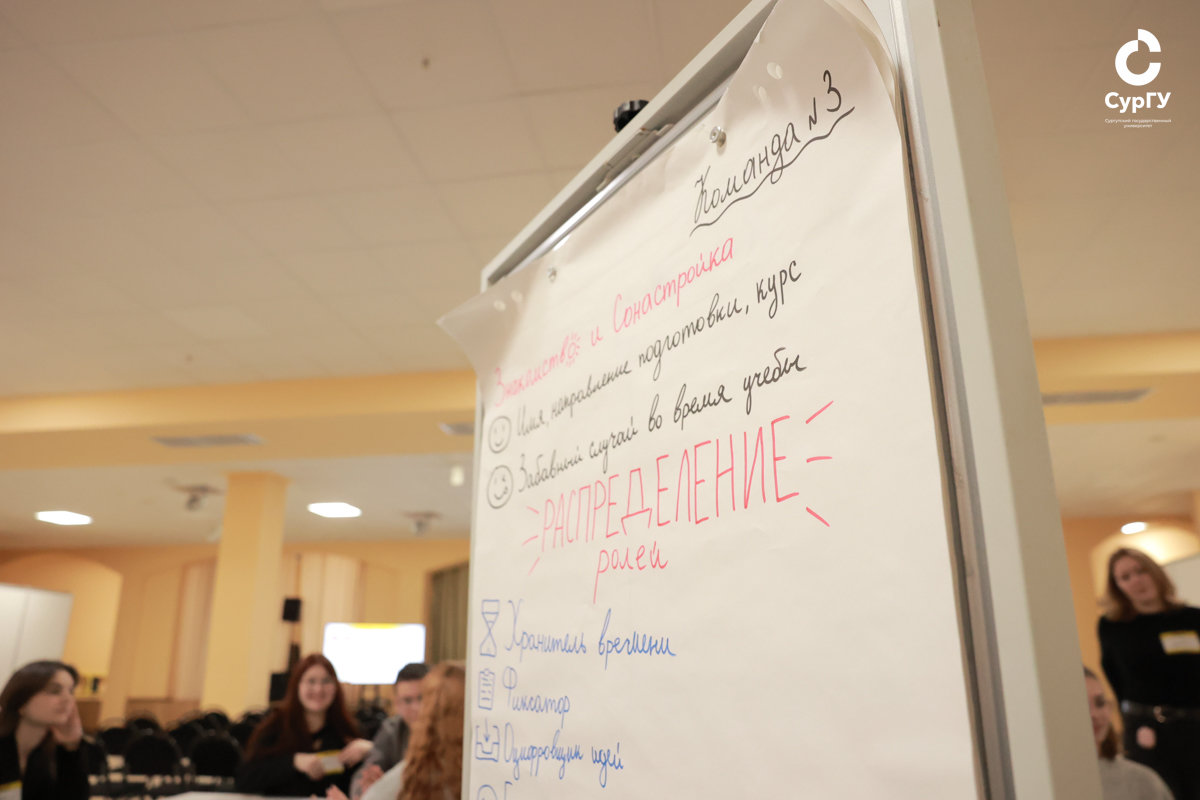 СурГУ
Сургутский государственный
университет
Команда №3
Знакомство и Сонастройка
Имя, направление подготовки, курс
Забавный случай во время учебы
РАСПРЕДЕЛЕНИЕ
ролей
Хранитель времени
Фиксатор
Оцифровщик идей